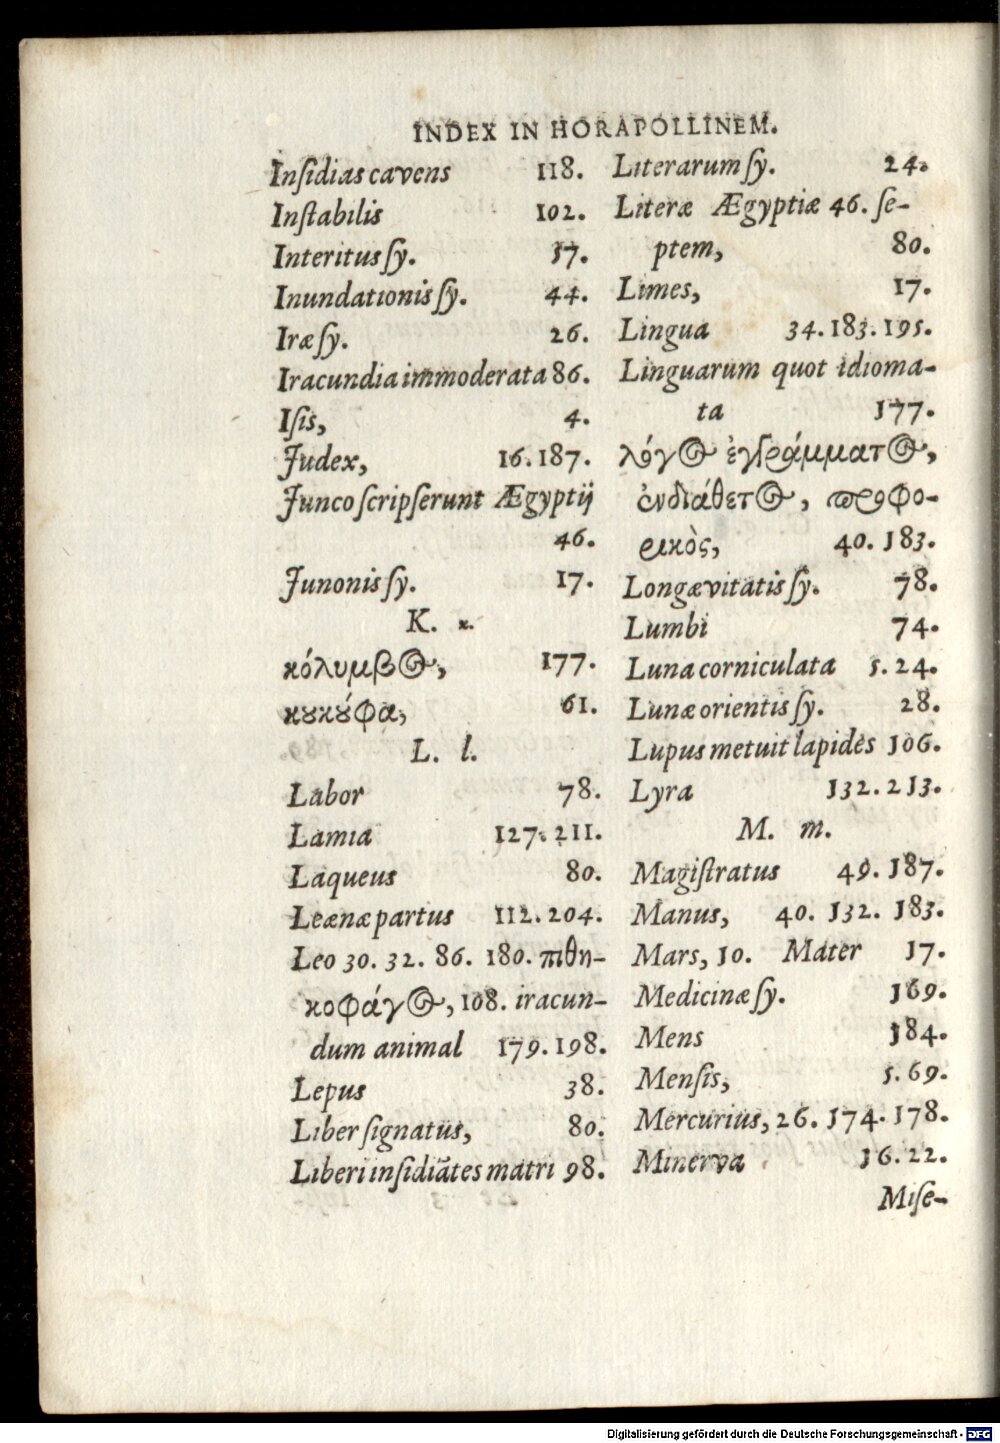 INDEX IN HORAPOLLINEM.
Inſidias cavens 118.
Inſtabilis 102.
Interitus ſy. 17.
Inundationis ſy. 44.
Iræ ſy. 26.
Iracundia immoderata 86.
Iſis, 4.
Judex, 16. 187.
Junco ſcripſerunt Ægyptij
46.
Junonis ſy. 17.
K. κ.
κόλυμβος, 177.
κουκούφα, 61.
L. l.
Labor 78.
Lamia 127. 211.
Laqueus 80.
Leænæ partus 112. 204.
Leo 30. 32. 86. 180. πιθη-
κοφάγος, 108. iracun-
dum animal 179. 198.
Lepus 38.
Liber ſignatus, 80.
Liberi inſidiãtes matri 98.
Literarum ſy. 24.
Literæ Ægyptiæ 46. ſe-
ptem, 80.
Limes, 17.
Lingua 34. 183. 195.
Linguarum quot idioma-
ta 177.
λόγος ἐγγράμματος,
ἐνδιάθετος, προφο-
ρικὸς, 40. 183.
Longævitatis ſy. 78.
Lumbi 74.
Luna corniculata 5. 24.
Lunæ orientis ſy. 28.
Lupus metuit lapides 106.
Lyra 132. 213.
M. m.
Magiſtratus 49. 187.
Manus, 40. 132. 183.
Mars, 10. Mater 17.
Medicinæ ſy. 169.
Mens 184.
Menſis, 5. 69.
Mercurius, 26. 174. 178.
Minerva 16. 22.
Miſe-
Digitalisierung gefördert durch die Deutsche Forschungsgemeinschaft - DFG